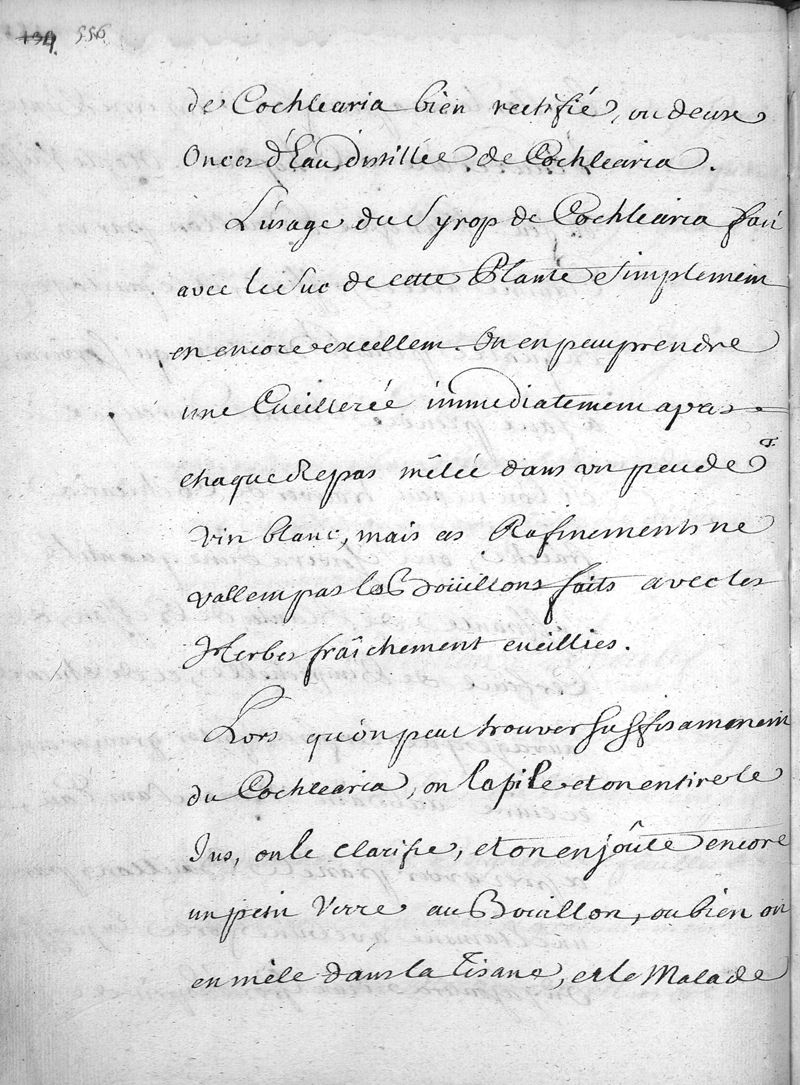 139. 556.
de Cochlearia bien rectifié, ou deux
Onces d'Eau distillée de Cochlearia.
L'usage du Syrop de Cochlearia fait
avec le Suc de cette Plante Simplement
est encore excellent. On en peut prendre
une Cueillerée immediatement apres
chaque Repas mêlée dans un peu de
vin blanc, mais ces Rafinements ne
vallent pas les Boüillons faits avec les
Herbes fraîchement cueillies.
Lors qu'on peut trouver Suffisamment
du Cochlearia, on la pile et on en tire le
Jus, on le clarifie, et on en joûte encore
un petit Verre au Bouillon, ou bien on
en mêle dans la Tisane, et le Malade